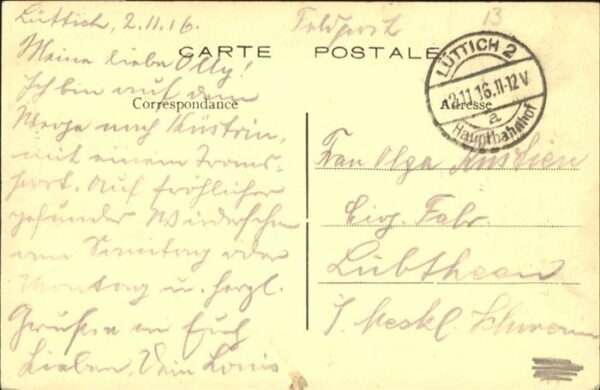 Lüttich, 2.11.16.
Feldpost
13
CARTE POSTALE
Correspondance
Adresse
LÜTTICH 2
2.11.16.11-12V
a
Hauptbahnhof
Meine liebe Olly!
Ich bin auf dem
Wege nach Küstrin,
mit einem Trans-
port. Auf fröhliches
gesundes Wiedersehn
am Sonntag oder
Montag u. herzl.
Grüßen an Euch
Lieben, Dein Louis
Frau Olga
Cig. Fabr.
Lübtheen
i. Meckl. Schwerin